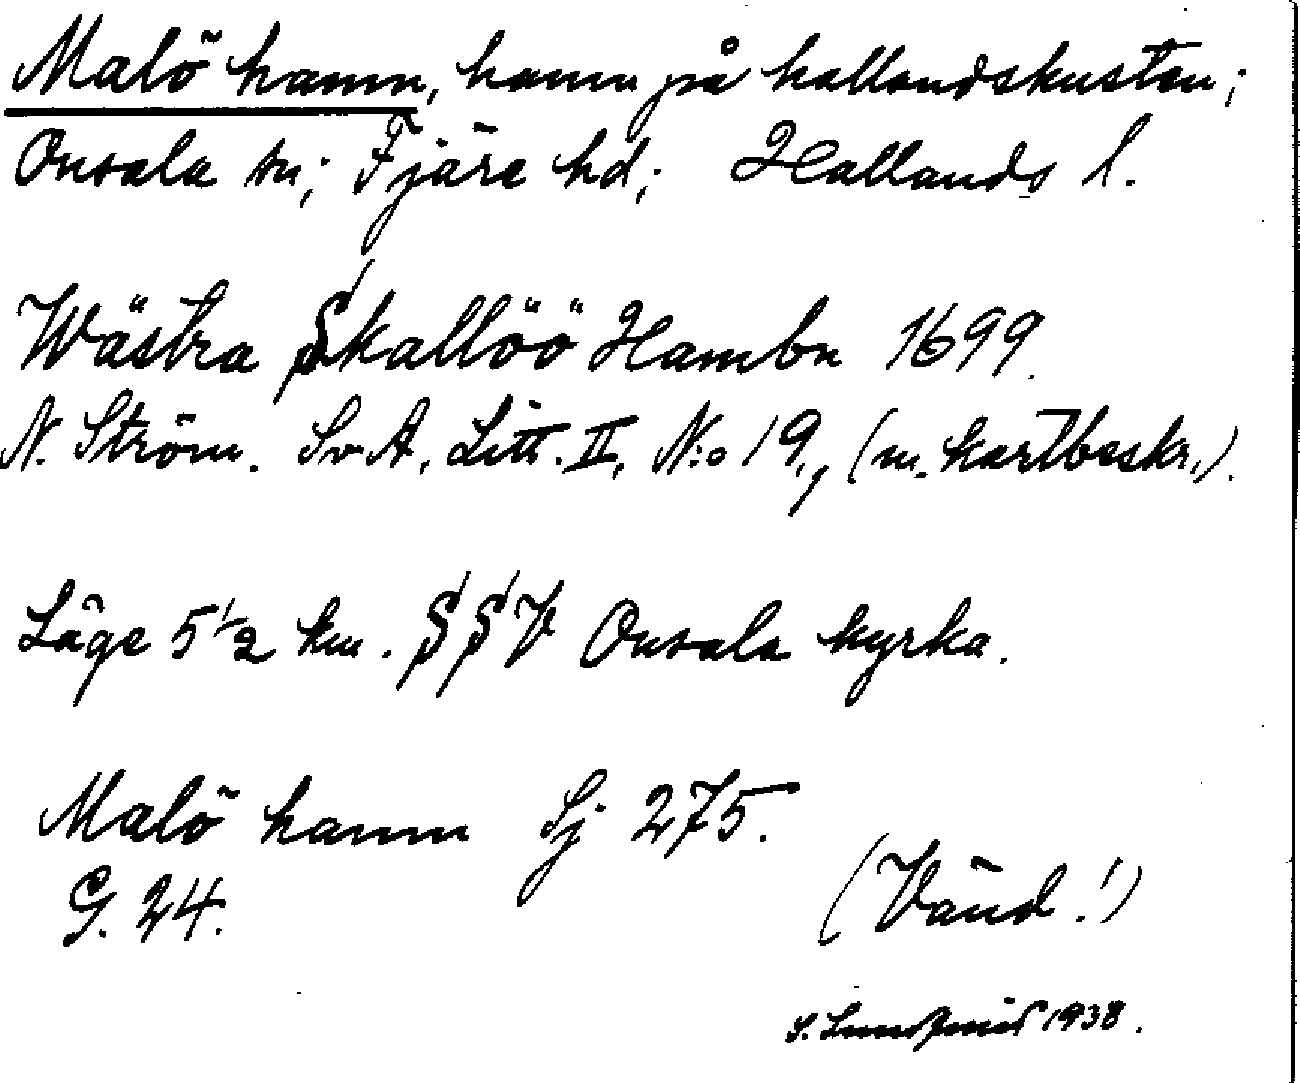 Malö hamn, hamn på hallandskusten;
Onsala sn; Fjäre hd; Hallands l.
Wästra Skallöö Hambn 1699.
N. Ström. SvA, Litt. II, N:o 19, (m. kartbeskr.).
Läge 5 1/2 km. SSV Onsala kyrka.
Malö hamn Sj 275.
G. 24.
(Vänd!)
S. Lundqvist 1938.